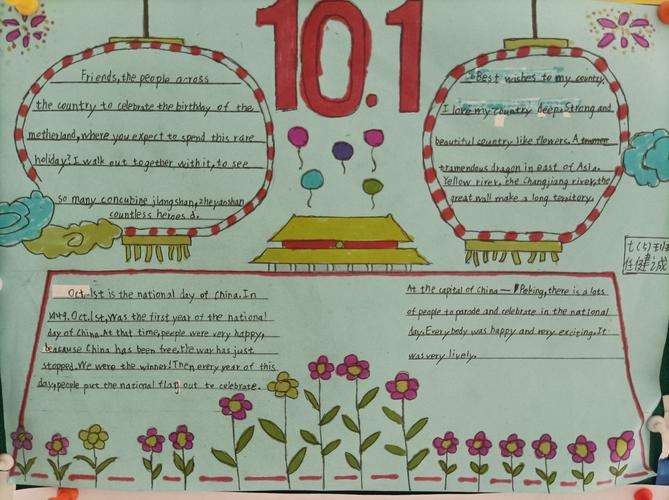 10.1
Friends, the people across
the country to celebrate the birthday of the
motherland, where you expect to spend this rare
holiday? I walk out together with it, to see
so many concubine jiangshan, zheyanshan
countless heroes d.
Best wishes to my country.
I love my country deep. Strong and
beautiful country like flowers. A
tramendous dragon in east of Asia.
Yellow river, the Changjiang river, the
great wall make a long territory.
七(5)班
任健诚
Oct.1st is the national day of China. In
1949. Oct.1st, Was the first year of the national
day of China. At that time, people were very happy,
because China has been free, the war has just
stopped. We were the winner! Then every year of this
day, people put the national flag out to celebrate.
At the capital of China — Peking, there is a lots
of people to parade and celebrate in the national
day. Everybody was happy and very exciting. It
was very lively.